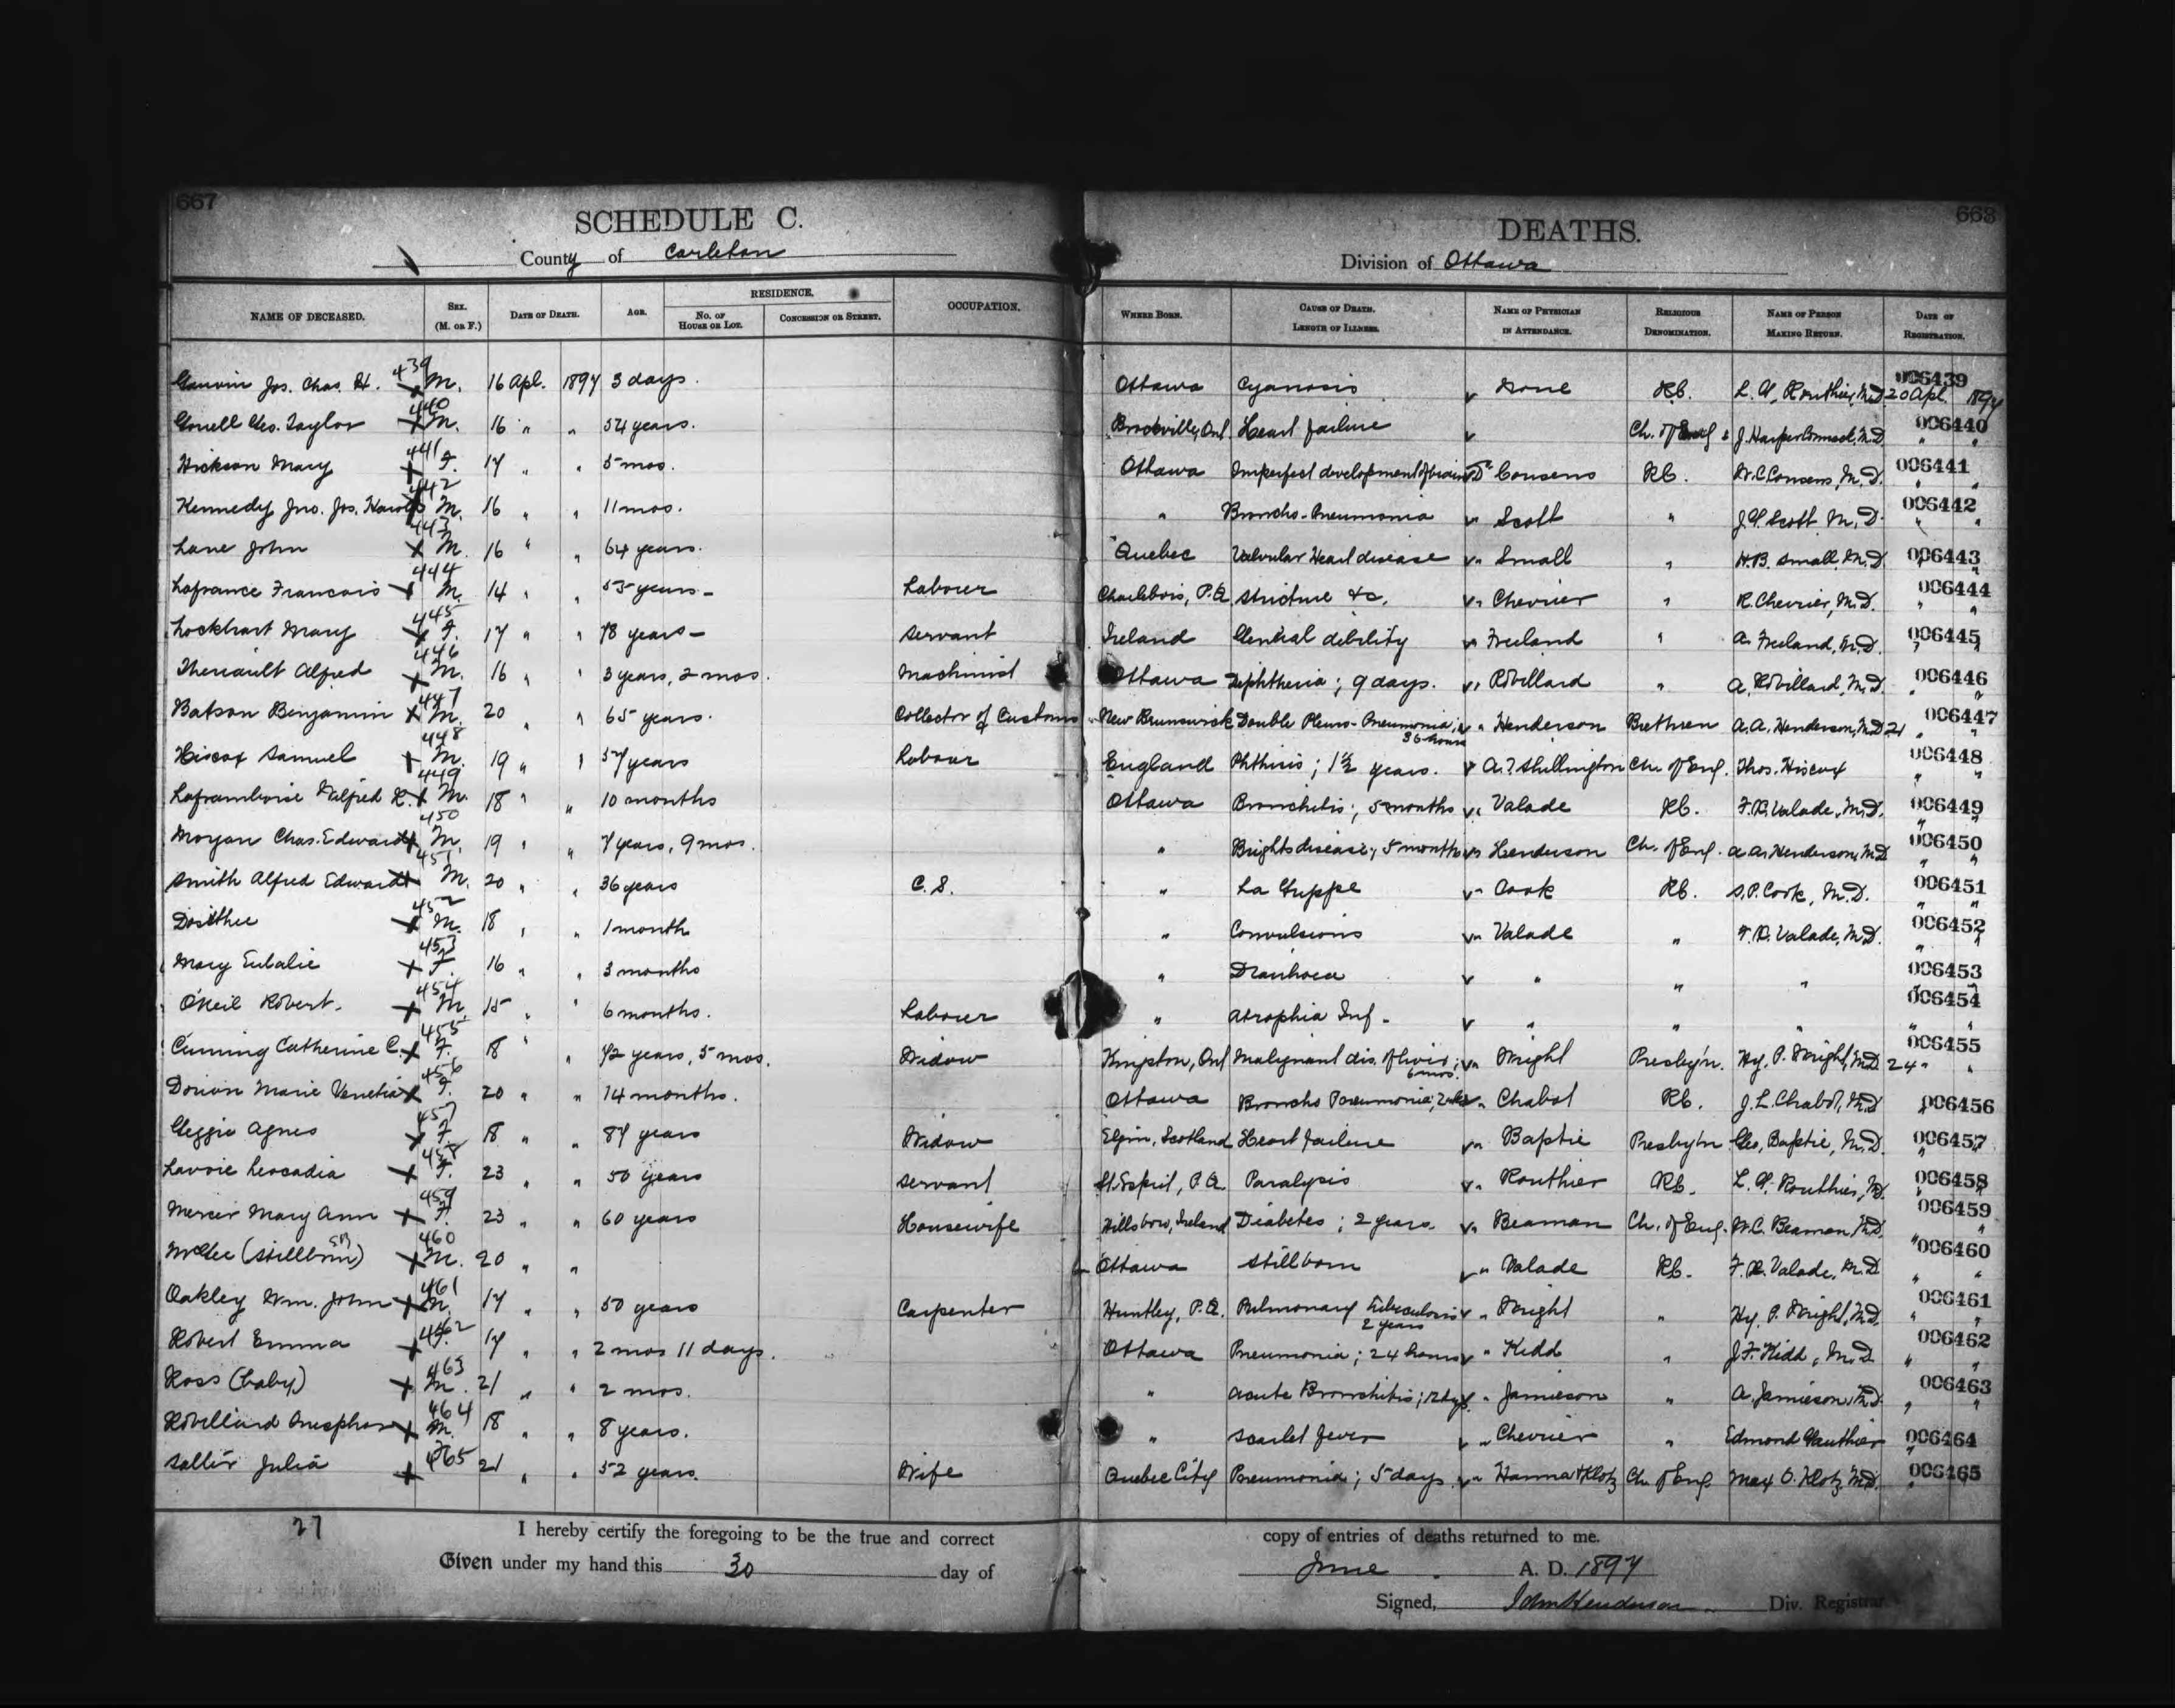 667
SCHEDULE C.
County of Carleton
NAME OF DECEASED. SEX. (M. OR F.) DATE OF DEATH. AGE. RESIDENCE. NO. OF HOUSE OR LOT. CONCESSION OR STREET. OCCUPATION.
668
DEATHS.
Division of Ottawa
WHERE BORN. CAUSE OF DEATH. LENGTH OF ILLNESS. NAME OF PHYSICIAN IN ATTENDANCE. RELIGIOUS DENOMINATION. NAME OF PERSON MAKING RETURN. DATE OF REGISTRATION.
Jos. Chas. H. 439 M. 16 Apl. 1897 3 days. Ottawa Cyanosis None R.C. L. Routhier, M.D. 20 Apl. 1897 006439
Geo. Taylor 440 M. 16 " " 54 years. Brockville, Ont Heart failure Ch. of Eng M.D. " " 006440
Hickson Mary 441 F. 17 " " 5 mos. Ottawa Imperfect development of brain Dr Cousens R.C. W.C. Cousens, M.D. " " 006441
Kennedy Jno. Jos. Harold 442 M. 16 " " 11 mos. " Broncho-Pneumonia " Scott " J.G. Scott M.D. " " 006442
Lane John 443 M. 16 " " 64 years. Quebec Valvular Heart disease " Small " H.B. Small, M.D. " " 006443
Lafrance Francois 444 M. 14 " " 55 years - Labourer Charlebois, P.Q. Stricture &c. " Chevrier " R. Chevrier, M.D. " " 006444
Lockhart Mary 445 F. 17 " " 78 years - Servant Ireland General debility " Freeland " A. Freeland, M.D. " " 006445
Theriault Alfred 446 M. 16 " " 3 years, 2 mos. Machinist Ottawa Diphtheria; 9 days. " Robillard " A. Robillard, M.D. " " 006446
Batson Benjamin 447 M. 20 " " 65 years. Collector of Customs New Brunswick Double Pleuro-Pneumonia; 36 hours " Henderson Brethren A.A. Henderson, M.D. 21 " " 006447
Hiscox Samuel 448 M. 19 " " 57 years Labour England Phthisis; 1½ years. A. T. Shillington Ch. of Eng. Thos. Hiscox " " 006448
Laframboise Wilfred R. 449 M. 18 " " 10 months Ottawa Bronchitis; 5 months " Valade R.C. F.X. Valade, M.D. " " 006449
Morgan Chas. Edward 450 M. 19 " " 7 years, 9 mos. " Brights disease; 5 months " Henderson Ch. of Eng. A.A. Henderson, M.D. " " 006450
Smith Alfred Edward 451 M. 20 " " 36 years C.S. " La Grippe " Cook R.C. S.P. Cook, M.D. " " 006451
Dosithee 452 M. 18 " " 1 month " Convulsions " Valade " F.X. Valade, M.D. " " 006452
Mary Eulalie 453 F. 16 " " 3 months " Diarrhoea " " " " " 006453
O'Neil Robert. 454 M. 15 " " 6 months. Labourer " Atrophia Inf. " " " " " 006454
Cuming Catherine C. 455 F. 18 " " 72 years, 5 mos. Widow Kingston, Ont Malignant dis. of liver; 6 mos. " Wright Presbyn. Hy. P. Wright, M.D. 24 " " 006455
Dorion Marie Venetia 456 F. 20 " " 14 months. Ottawa Broncho Pneumonia; " Chabot R.C. J.L. Chabot, M.D. 006456
Gleggie Agnes 457 F 18 " " 87 years Widow Elgin, Scotland Heart failure " Baptie Presbyn Geo. Baptie, M.D. " 006457
Lavoie Leocadia 458 F. 23 " " 50 years Servant St. Esprit, P.Q. Paralysis " Routhier R.C. L. Routhier, M.D. " " 006458
Mercer Mary Ann 459 F. 23 " " 60 years Housewife Hillsboro, Ireland Diabetes; 2 years. " Beaman Ch. of Eng. W.C. Beaman, M.D. " 006459
McGee (Stillborn) SB 460 M. 20 " " Ottawa Stillborn " Valade R.C. F.X. Valade, M.D. " " 006460
Oakley Wm. John 461 M. 17 " " 50 years Carpenter Huntley, P.Q. Pulmonary tuberculosis 2 years " Wright " Hy. P. Wright, M.D. " " 006461
Robert Emma 462 F. 17 " " 2 mos 11 days. Ottawa Pneumonia; 24 hours " Kidd " J.F. Kidd, M.D. " " 006462
Ross (baby) 463 M. 21 " " 2 mos. " Acute Bronchitis; " Jamieson " A. Jamieson, M.D. " " 006463
Robillard Onesphore 464 M. 18 " " 8 years. " Scarlet fever " Chevrier " Edmond Gauthier " 006464
Julia 465 21 " " 52 years. Wife Quebec City Pneumonia; 5 days " Hanna & Klotz Ch. of Eng. Max O. Klotz, M.D. " 006465
27 I hereby certify the foregoing to be the true and correct copy of entries of deaths returned to me.
Given under my hand this 30 day of June A. D. 1897
Signed, John Henderson Div. Registrar